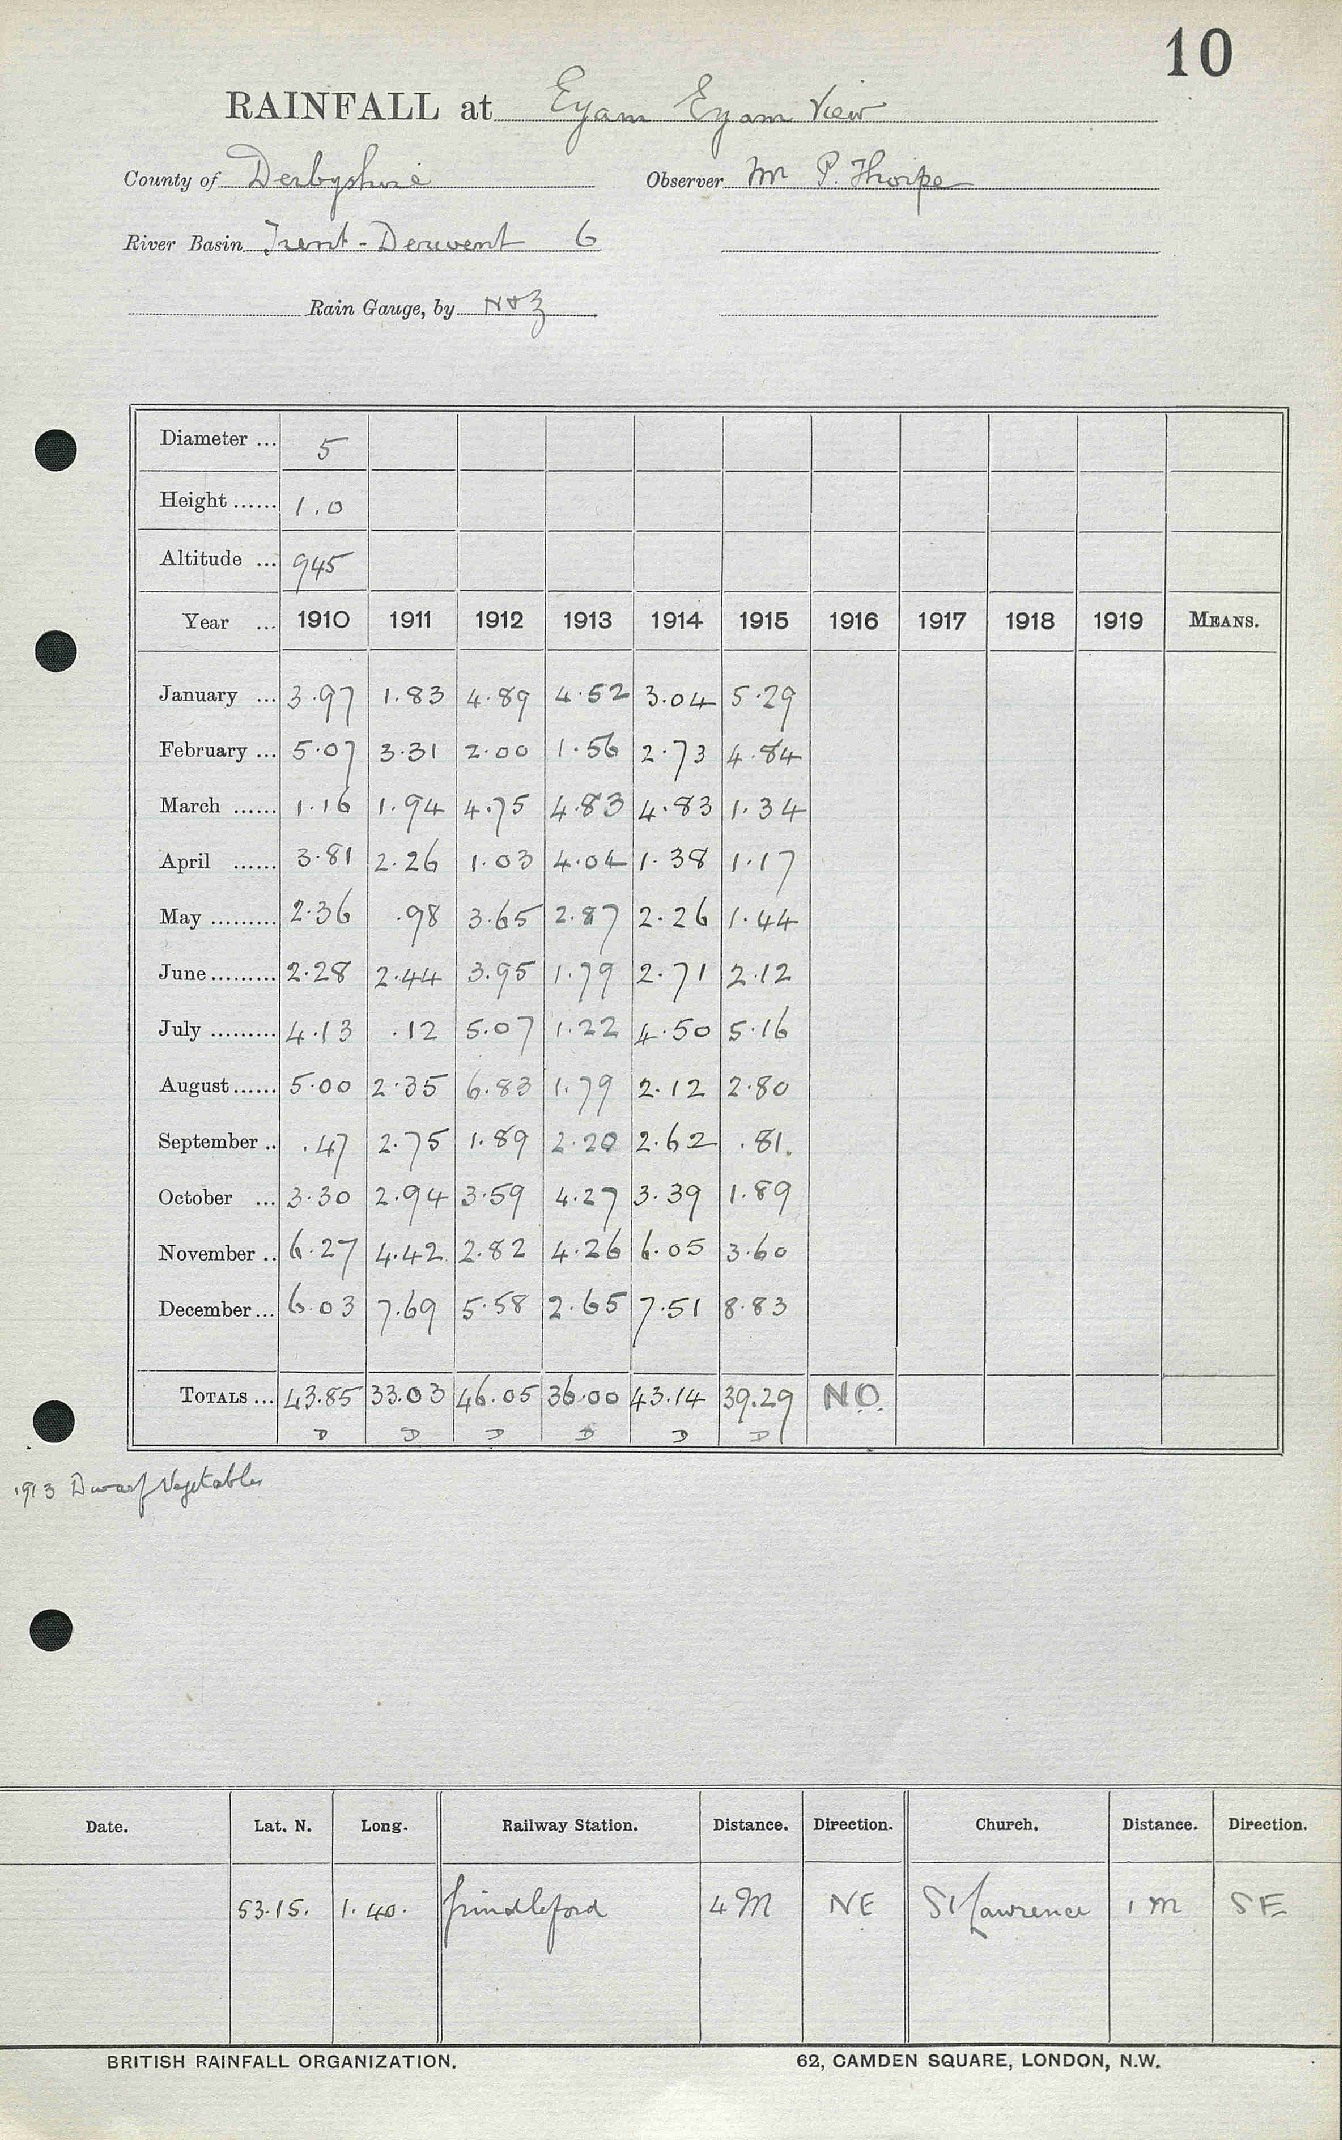 10
RAINFALL at Eyam Eyam View
County of Derbyshire Observer Mr P. Thorpe
River Basin Trent - Derwent 6
Rain Gauge, by N&Z
Diameter ... 5
Height ...... 1.0
Altitude ... 945
Year ... 1910 1911 1912 1913 1914 1915 1916 1917 1918 1919 MEANS.
January ... 3.97 1.83 4.89 4.52 3.04 5.29
February ... 5.07 3.31 2.00 1.56 2.73 4.84
March ...... 1.16 1.94 4.75 4.83 4.83 1.34
April ...... 3.81 2.26 1.03 4.04 1.38 1.17
May ......... 2.36 .98 3.65 2.87 2.26 1.44
June ......... 2.28 2.44 3.95 1.79 2.71 2.12
July ......... 4.13 .12 5.07 1.22 4.50 5.16
August ...... 5.00 2.35 6.83 1.79 2.12 2.80
September .. .47 2.75 1.89 2.20 2.62 .81.
October ... 3.30 2.94 3.59 4.27 3.39 1.89
November .. 6.27 4.42 2.82 4.26 6.05 3.60
December ... 6.03 7.69 5.58 2.65 7.51 8.83
TOTALS ... 43.85 33.03 46.05 36.00 43.14 39.29 NO.
D D D D D D
1913 Dwarf Vegetables
Date. Lat. N. Long. Railway Station. Distance. Direction. Church. Distance. Direction.
53.15. 1.40. Grindleford 4 M NE St Lawrence 1 M SE
BRITISH RAINFALL ORGANIZATION. 62, CAMDEN SQUARE, LONDON, N.W.